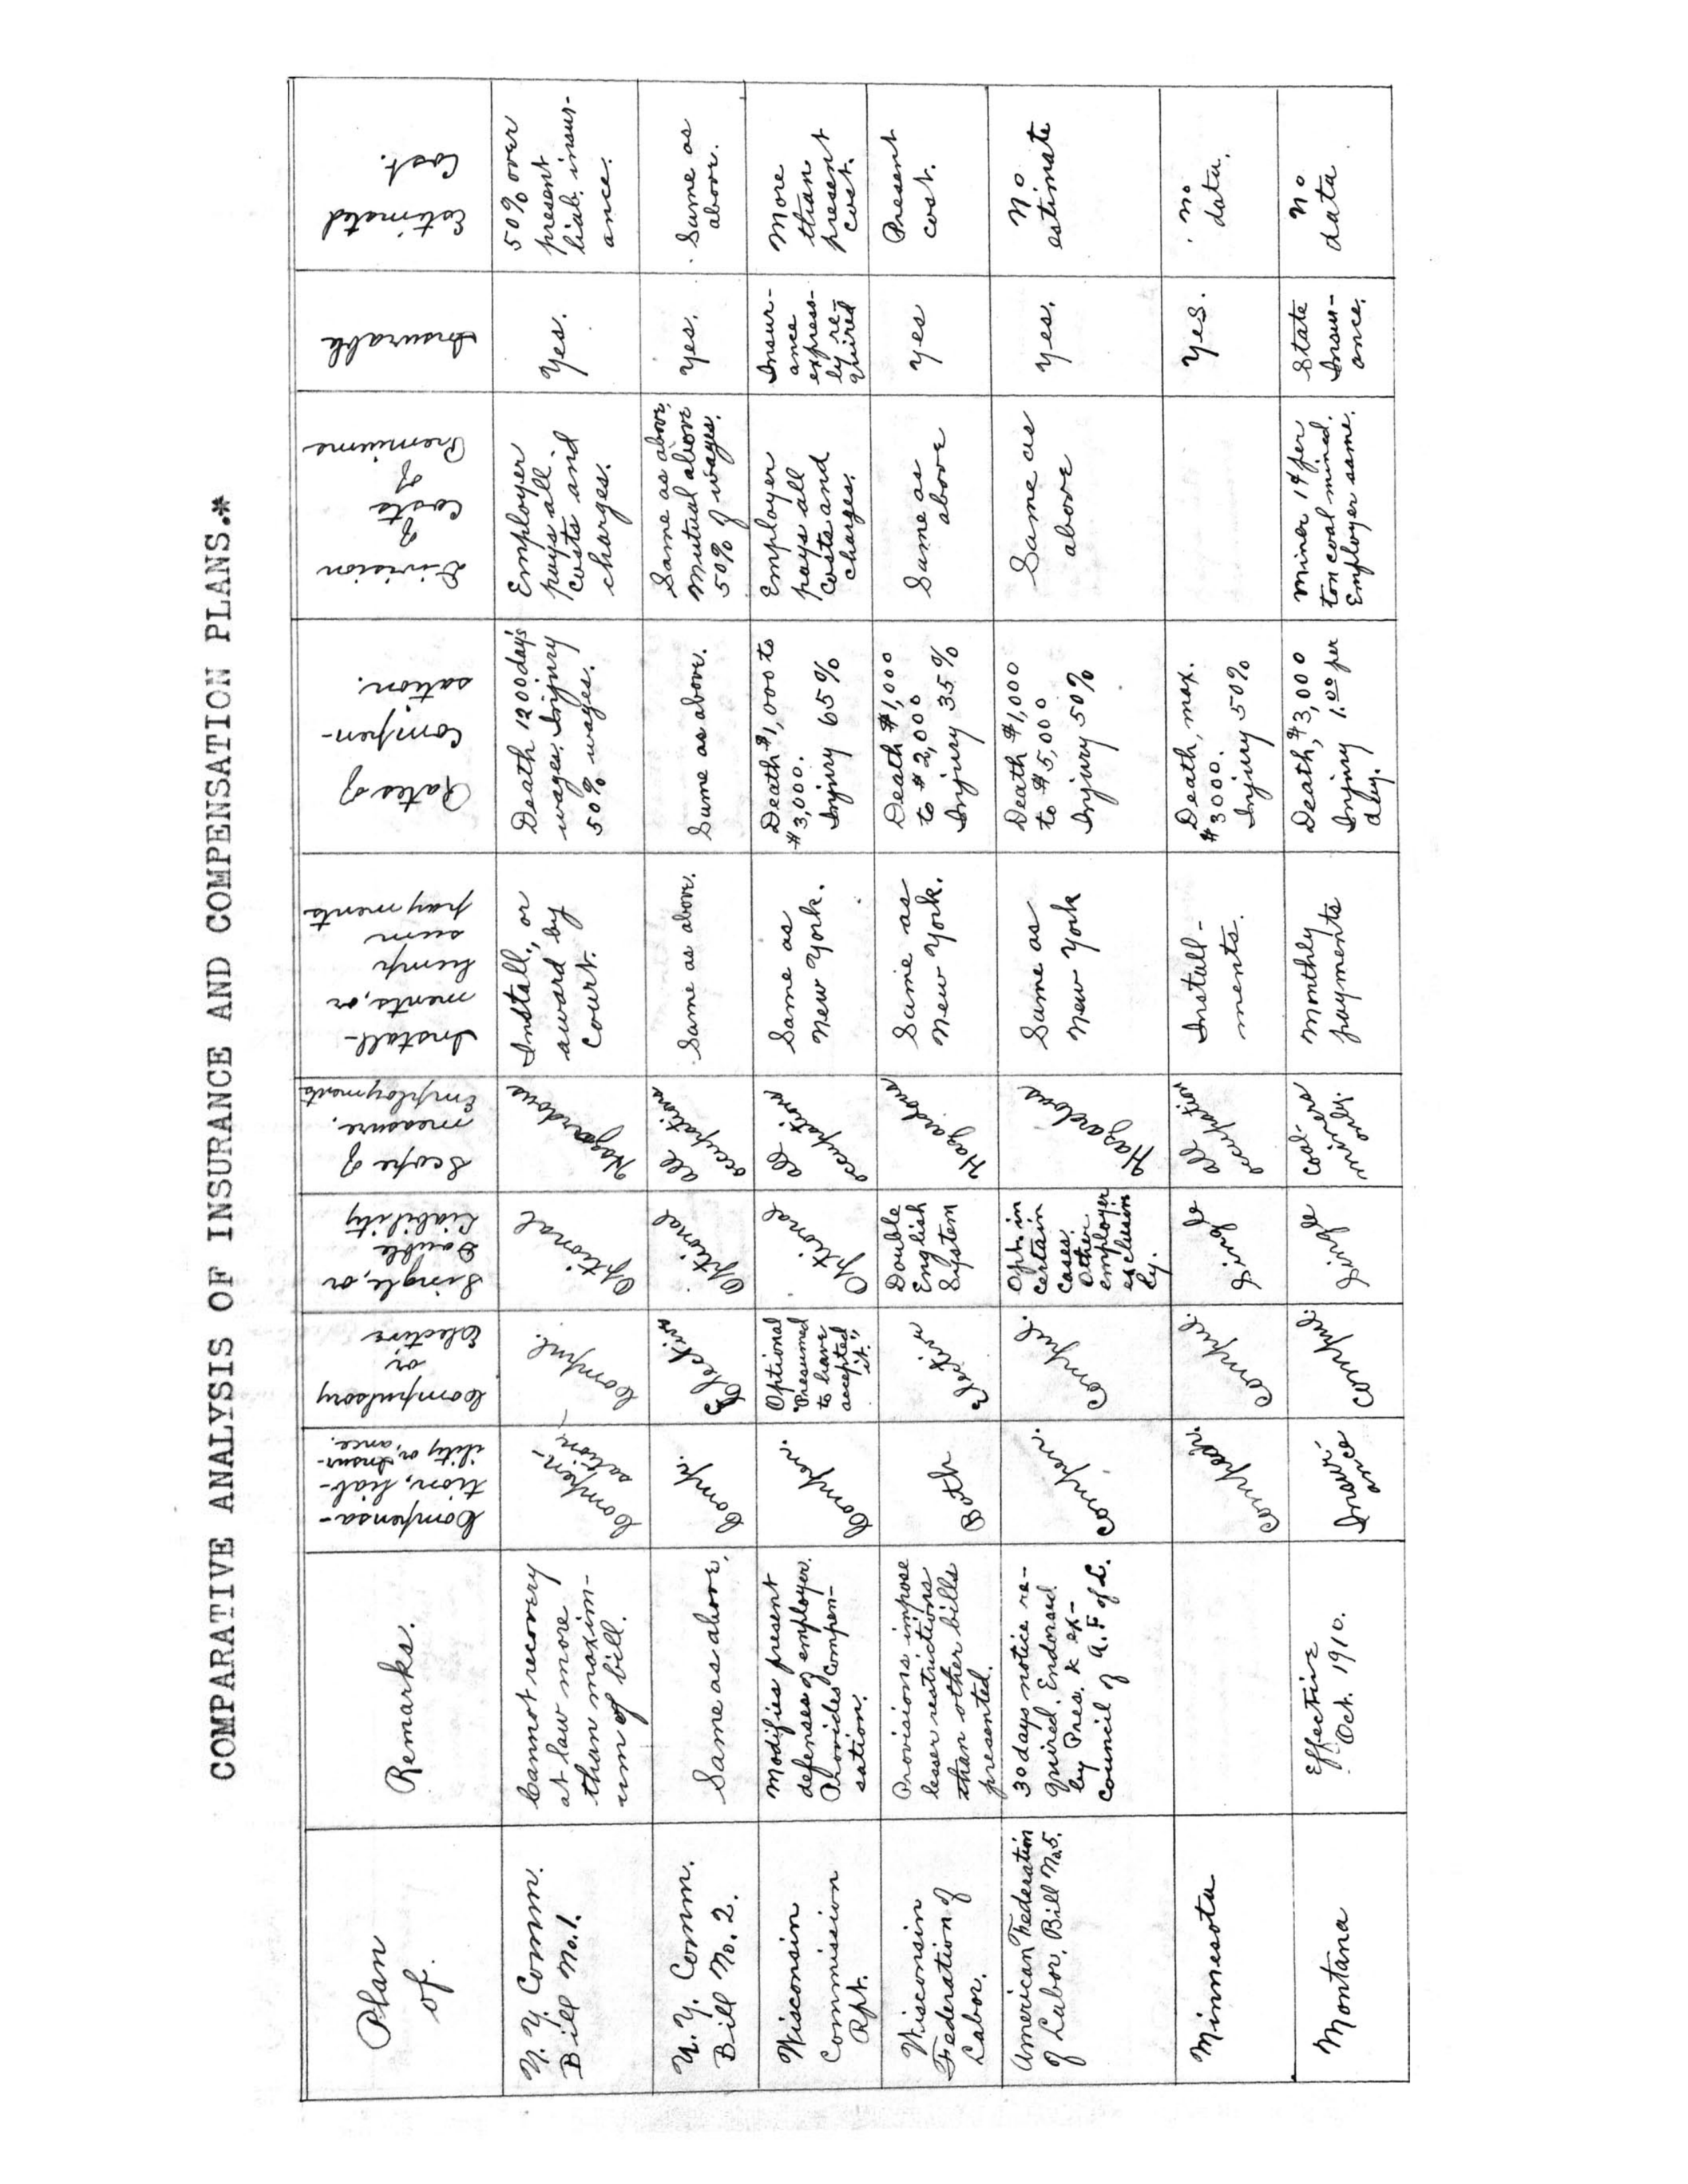 COMPARATIVE ANALYSIS OF INSURANCE AND COMPENSATION PLANS.*
Plan
of.
Remarks.
Compensa-
tion, liab-
ility or, Insur-
ance.
Compulsory
or
Elective
Single, or
Double
Liability
Scope of
measure.
Employments
Install-
ments, or
Lump
sum
payments
Rates of
Compen-
sation.
Division
of
Costs
of
Premiums
Insurable
Estimated
Cost.
N. Y. Comm.
Bill No. 1.
Cannot recovery
at law more
than maxim-
um of bill.
Compen-
sation
Compul.
Optional
Hazardous
Install., or
award by
Court.
Death 1200 day's
wages. Injury
50% wages.
Employer
pays all
costs and
charges.
Yes.
50% over
present
liab. insur-
ance.
N. Y. Comm.
Bill No. 2.
Same as above.
Comp.
Elective
Optional
all
occupations
Same as above.
Same as above.
Same as above.
Mutual above
50% of wages.
Yes.
Same as
above.
Wisconsin
Commission
Rpt.
Modifies present
defenses of employer.
Provides Compen-
sation.
Compen.
Optional
"Presumed
to have
accepted
it."
Optional
all
occupations
Same as
New York.
Death $1,000 to
$3,000.
Injury 65%
Employer
pays all
costs and
charges.
Insur-
ance
express-
ly re-
quired
More
than
present
cost.
Wisconsin
Federation of
Labor.
Provisions impose
lesser restrictions
than other bills
presented.
Both
Elective
Double
English
System
Hazardous
Same as
New York.
Death $1,000
to $2,000
Injury 35%
Same as
above
yes
Present
cost.
American Federation
of Labor. Bill No. 5.
30 days notice re-
quired. Endorsed
by Pres. & ex-
council of A. F of L.
compen.
compul.
Opt. in
certain
cases.
Other
employer
exclusive
ly.
Hazardous
Same as
New York
Death $1,000
to $5,000
Injury 50%
Same as
above
yes.
No
estimate
Minnesota
compen.
compul.
Single
all
occupation
Install-
ments.
Death, max.
$3000.
Injury 50%
Yes.
No
data.
Montana
Effective
Oct. 1910.
Insur-
ance
compul.
Single
coal-
miners
only.
Monthly
payments
Death, $3,000
Injury 1.00 per
day.
Miner 1¢ per
ton coal mined.
Employer same.
State
Insur-
ance.
No
data